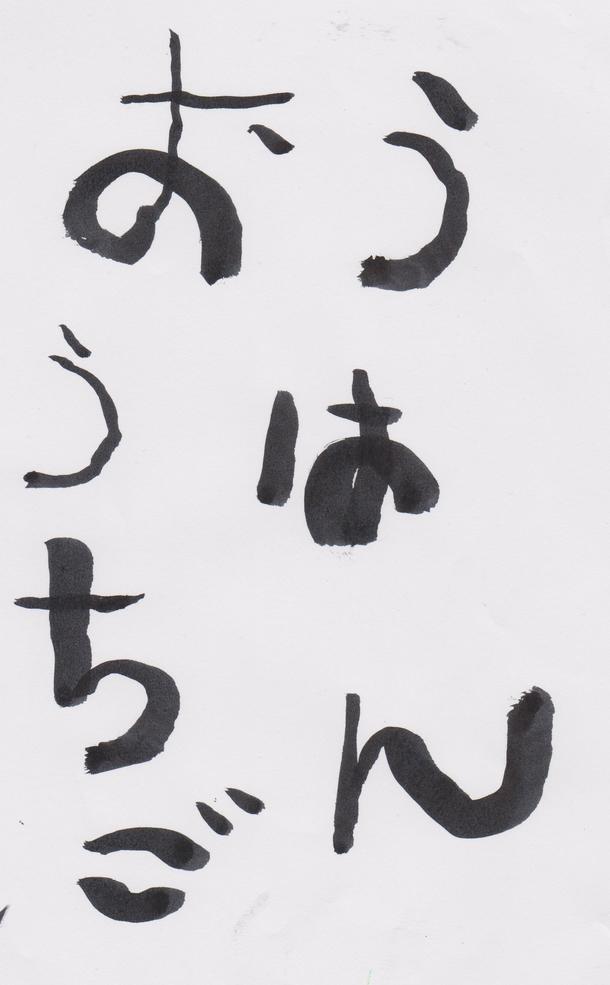 うはん
おうちご